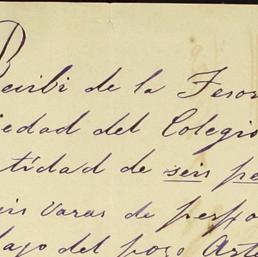 Recibi de la Teso
iedad del Colegio
tidad de seis pe
eis varas de perfo
bajo del pozo Arte